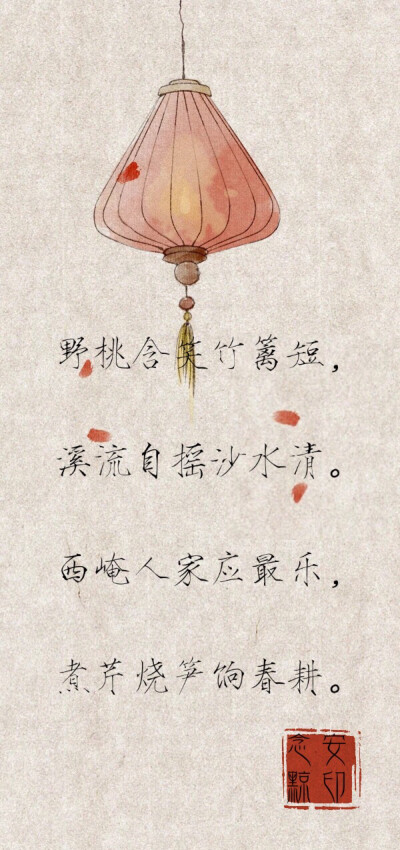 野桃含笑竹篱短，
溪流自摇沙水清。
西崦人家应最乐，
煮芹烧笋饷春耕。
安印
念黥